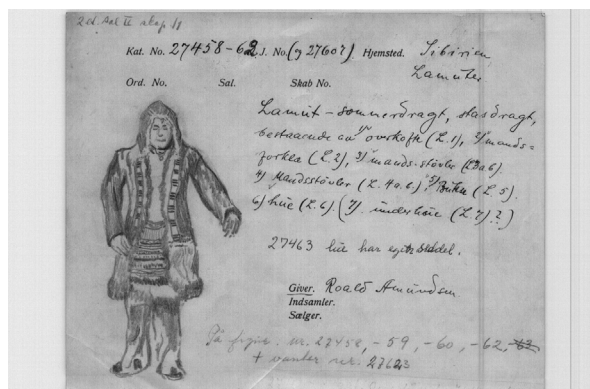 2 et. Sal II skap 18
Kat. No. 27458-62 J. No. (og 27607) Hjemsted. Sibirien
Lamuter
Ord. No. Sal. Skab No.
Lamut - sommerdragt, stasdragt,
bestaaende av 1) overkofte (L. 1), 2) mands-
forklæ (L. 2), 3) mands-støvler (L 3 a b).
4) Mandsstövler (L. 4 a. b.) 5) Buker (L. 5).
6) hue (L. 6). (7). underhue (L. 7)?)
27463 hue har eget seddel.
Giver. Roald Amundsen
Indsamler.
Sælger.
På figur. nr. 27458, -59, -60, -62, -63
+ vanter nr. 27623